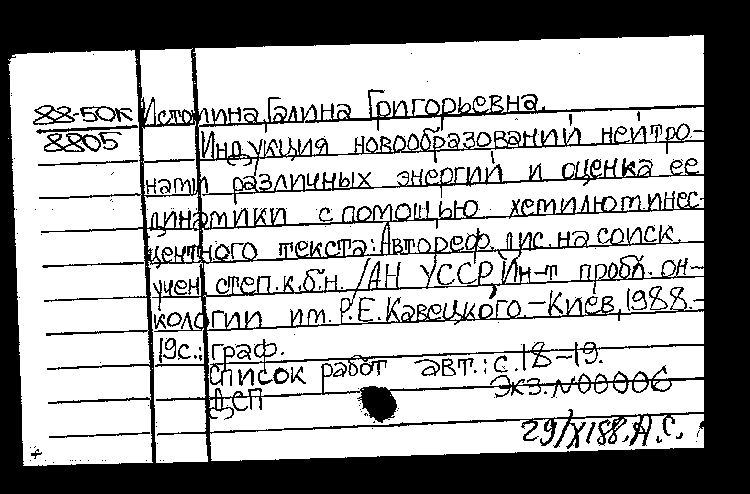 88-50К Истомина, Галина Григорьевна.
8805 Индукция новообразований нейтро-
нами различных энергий и оценка ее
динамики с помощью хемилюминес-
центного текста: Автореф. дис. на соиск.
учен. степ. к.б.н. /АН УССР, Ин-т пробл. он-
кологии им. Р.Е. Кавецкого. – Киев, 1988. –
19с.: граф.
Список работ авт.: с. 18–19.
ДСП Экз. N00006
29/XI 88. А.С.